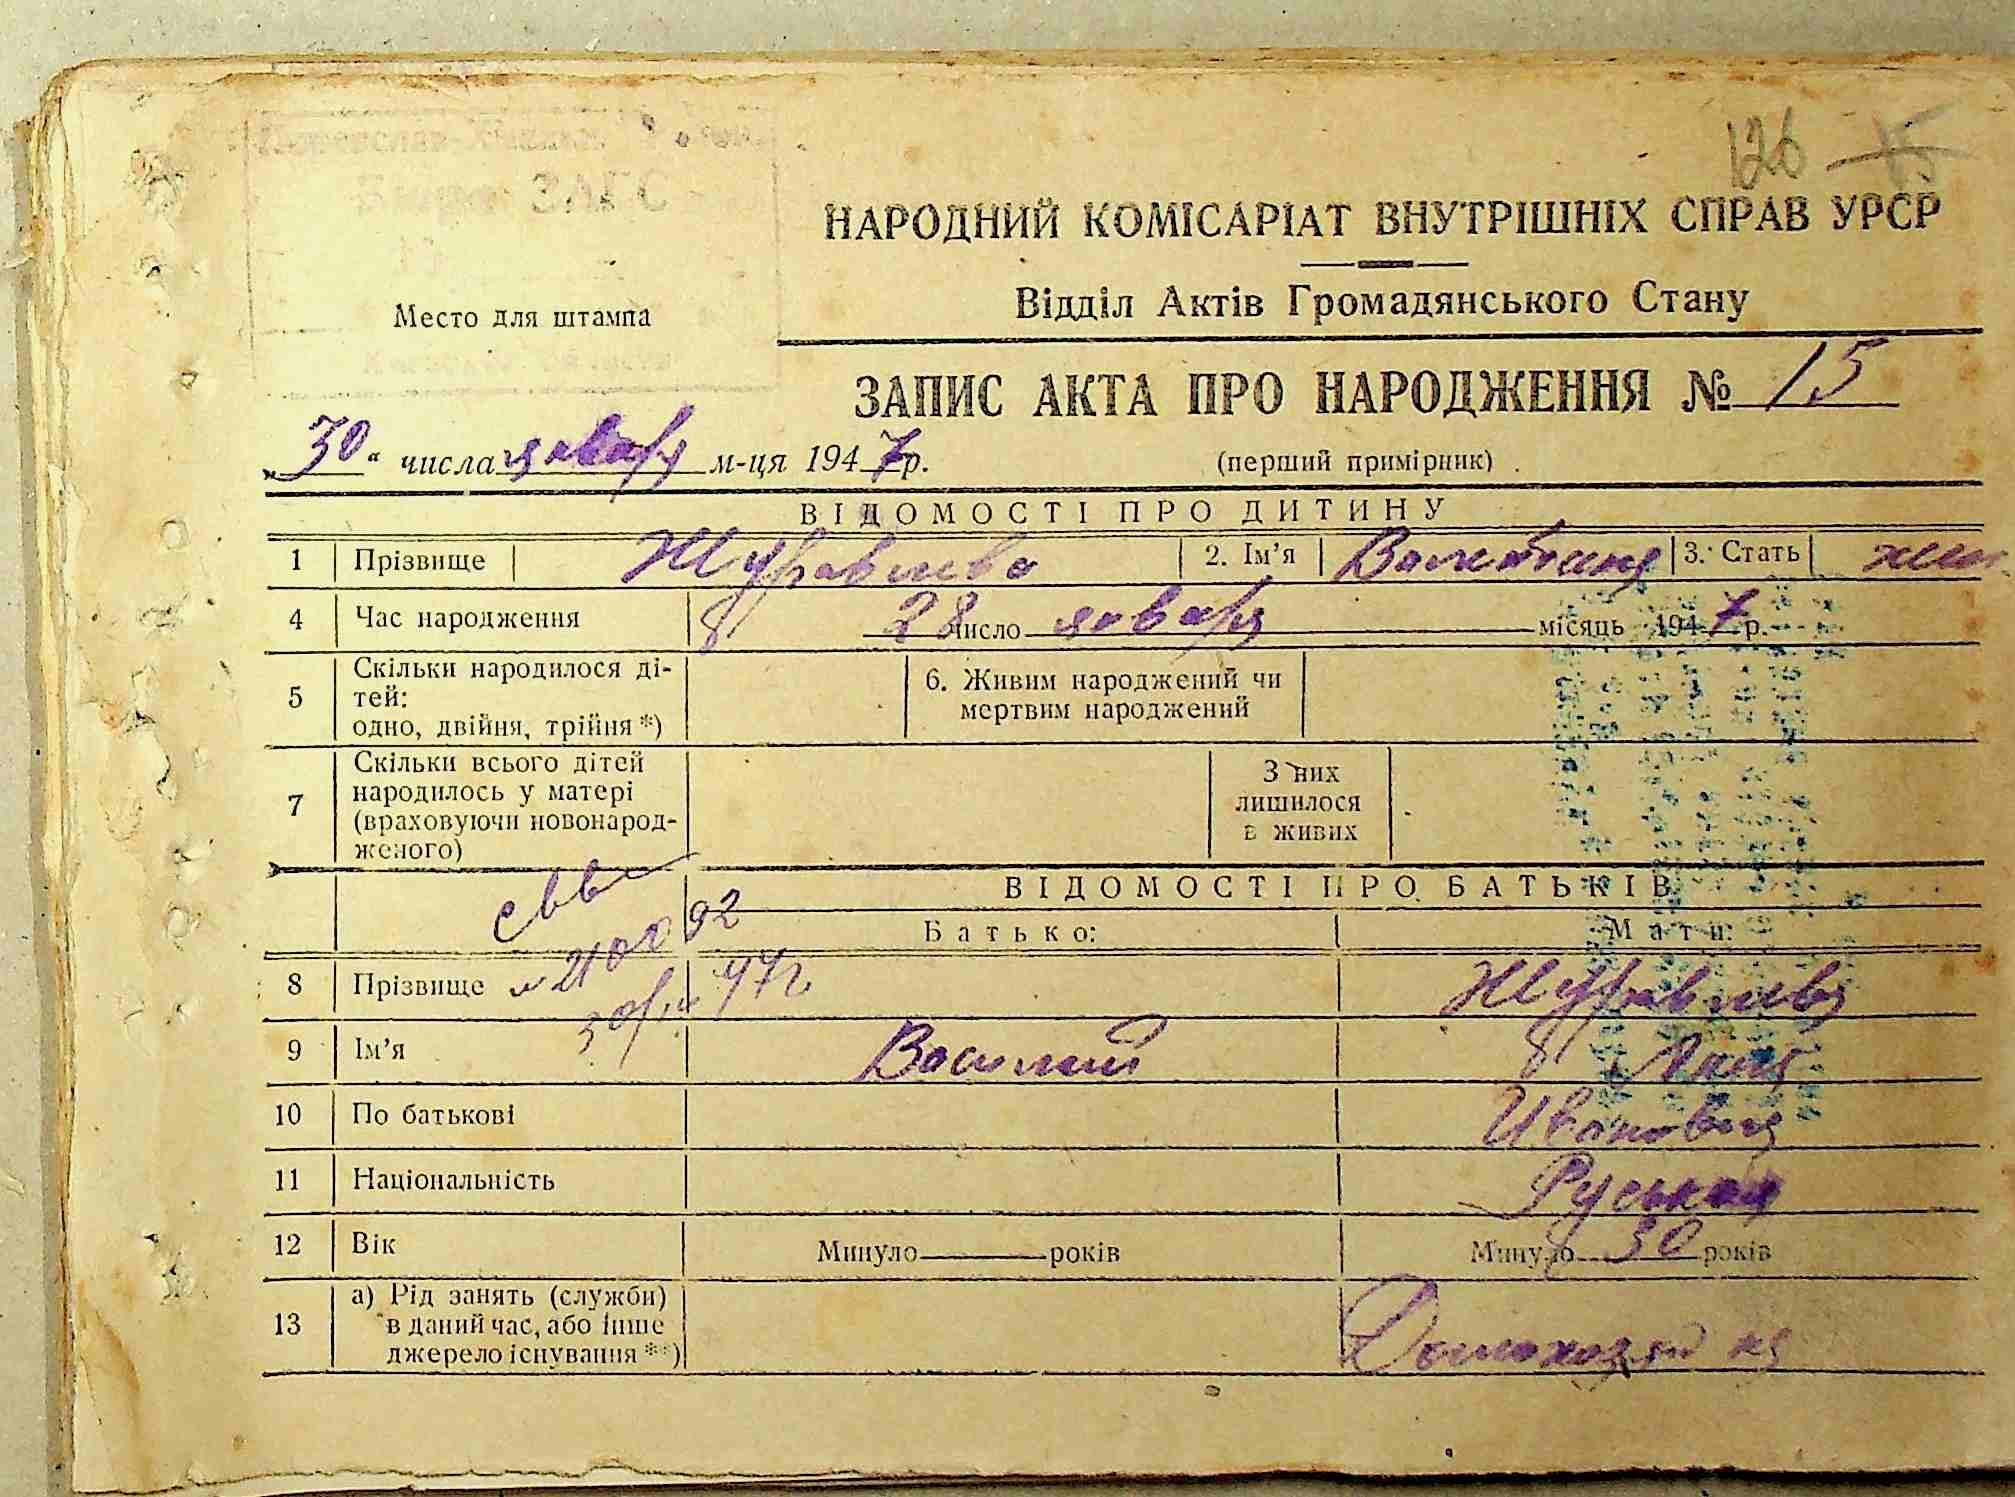 126 15
Бюро ЗАГС
НАРОДНИЙ КОМІСАРІАТ ВНУТРІШНІХ СПРАВ УРСР
Відділ Актів Громадянського Стану
Место для штампа
ЗАПИС АКТА ПРО НАРОДЖЕННЯ № 15
„30“ числа января м-ця 1947 р.
(перший примірник)
ВІДОМОСТІ ПРО ДИТИНУ
1 Прізвище Журавлева 2. Ім’я Валентина 3. Стать жен
4 Час народження 28 число января місяць 1947 р.
5 Скільки народилося ді-
тей:
одно, двійня, трійня *)
6. Живим народжений чи
мертвим народжений
7 Скільки всього дітей
народилось у матері
(враховуючи новонарод-
женого)
З них
лишилося
в живих
ВІДОМОСТІ ПРО БАТЬКІВ
Батько: Мати:
8 Прізвище Журавлева
47 г
9 Ім’я Василий Анна
10 По батькові Ивановна
11 Національність Руськая
12 Вік Минуло років Минуло 30 років
13 а) Рід занять (служби)
в даний час, або інше
джерело існування **)
Домохозяйка